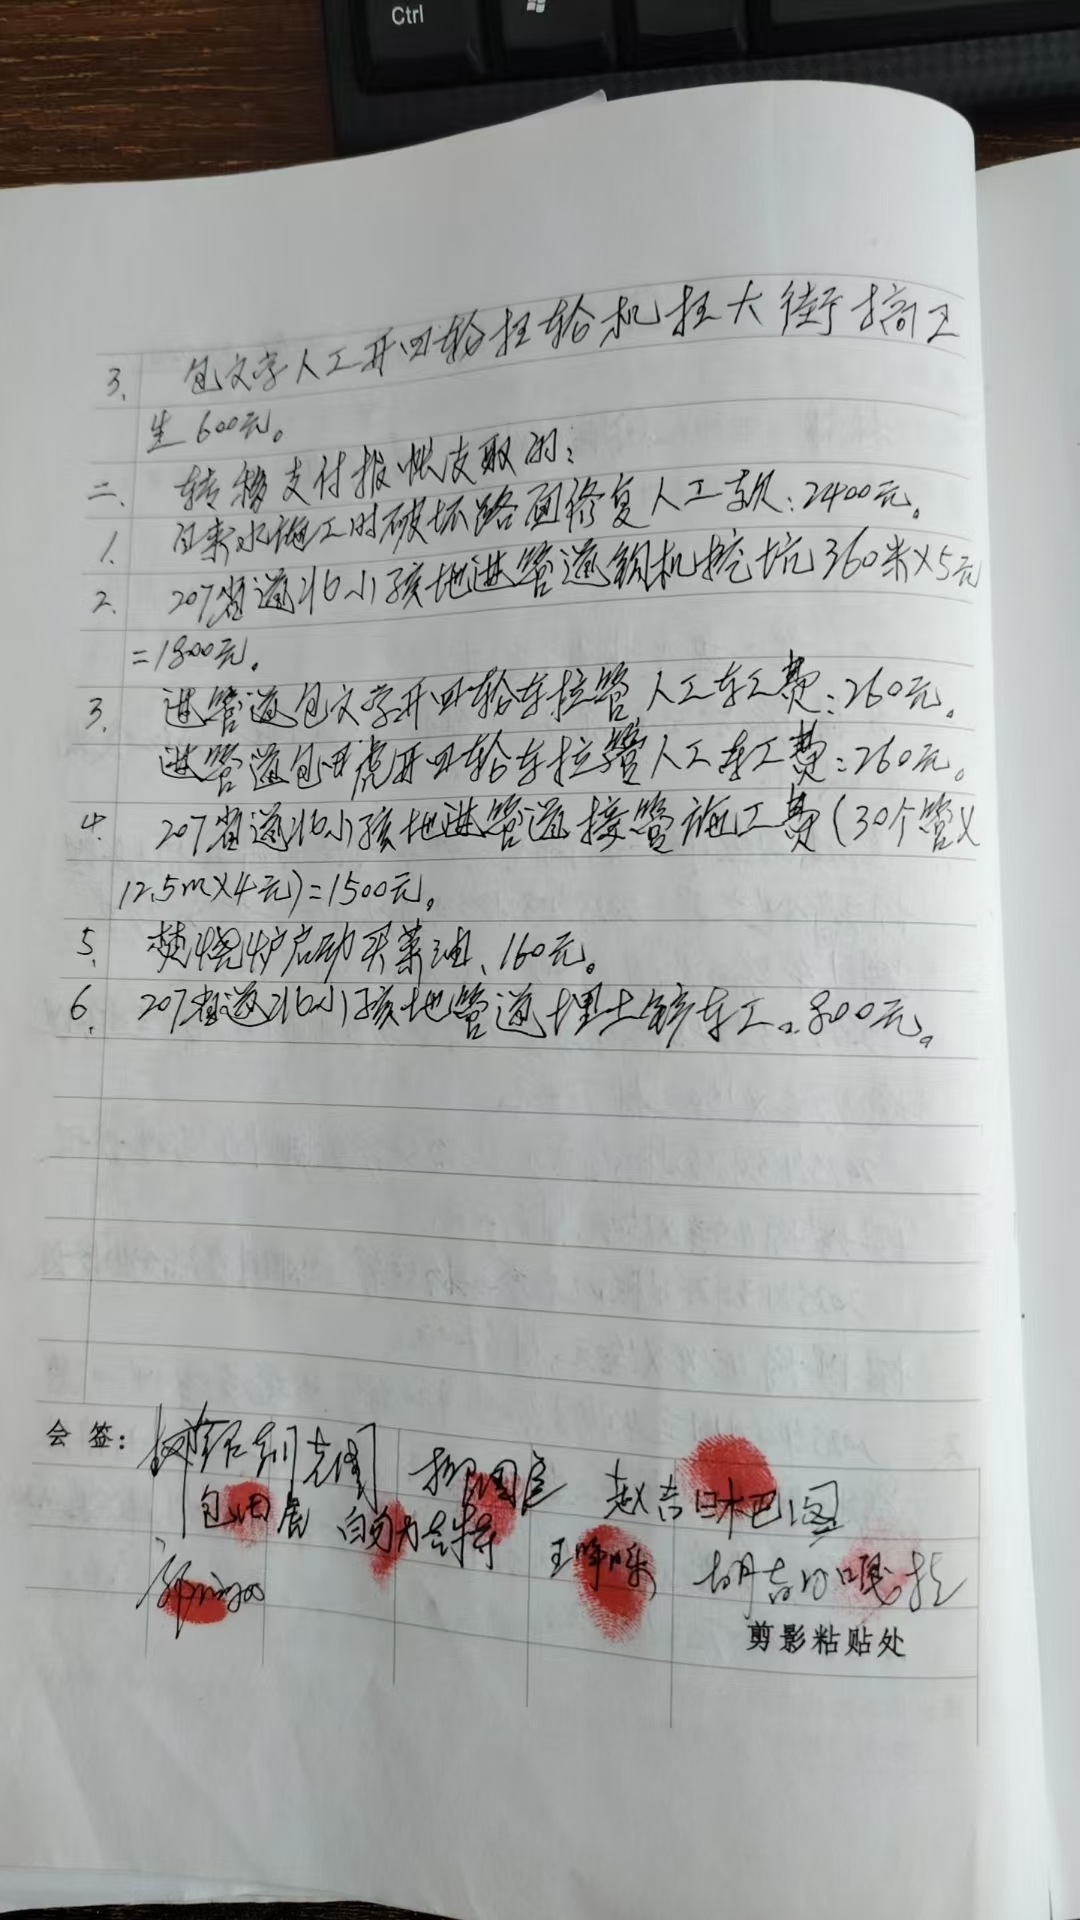 Ctrl
3. 包文字人工开四轮扫轮机扫大街搞卫
生600元。
二、 转移支付报帐支取的:
1. 自来水施工时破坏路面修复人工款:2400元。
2. 207省道北小孩地进管道钩机挖坑360米X5元
=1800元。
3. 进管道包文字开四轮车拉管人工车工费:260元。
进管道包田虎开四轮车拉管人工车工费:260元。
4. 207省道北小孩地进管道接管施工费(30个管X
12.5mX4元)=1500元。
5. 焚烧炉启动买菜油、160元。
6. 207省道北小孩地管道埋土铲车工。800元。
会 签:
赵吉日木巴图
包田虎
剪影粘贴处